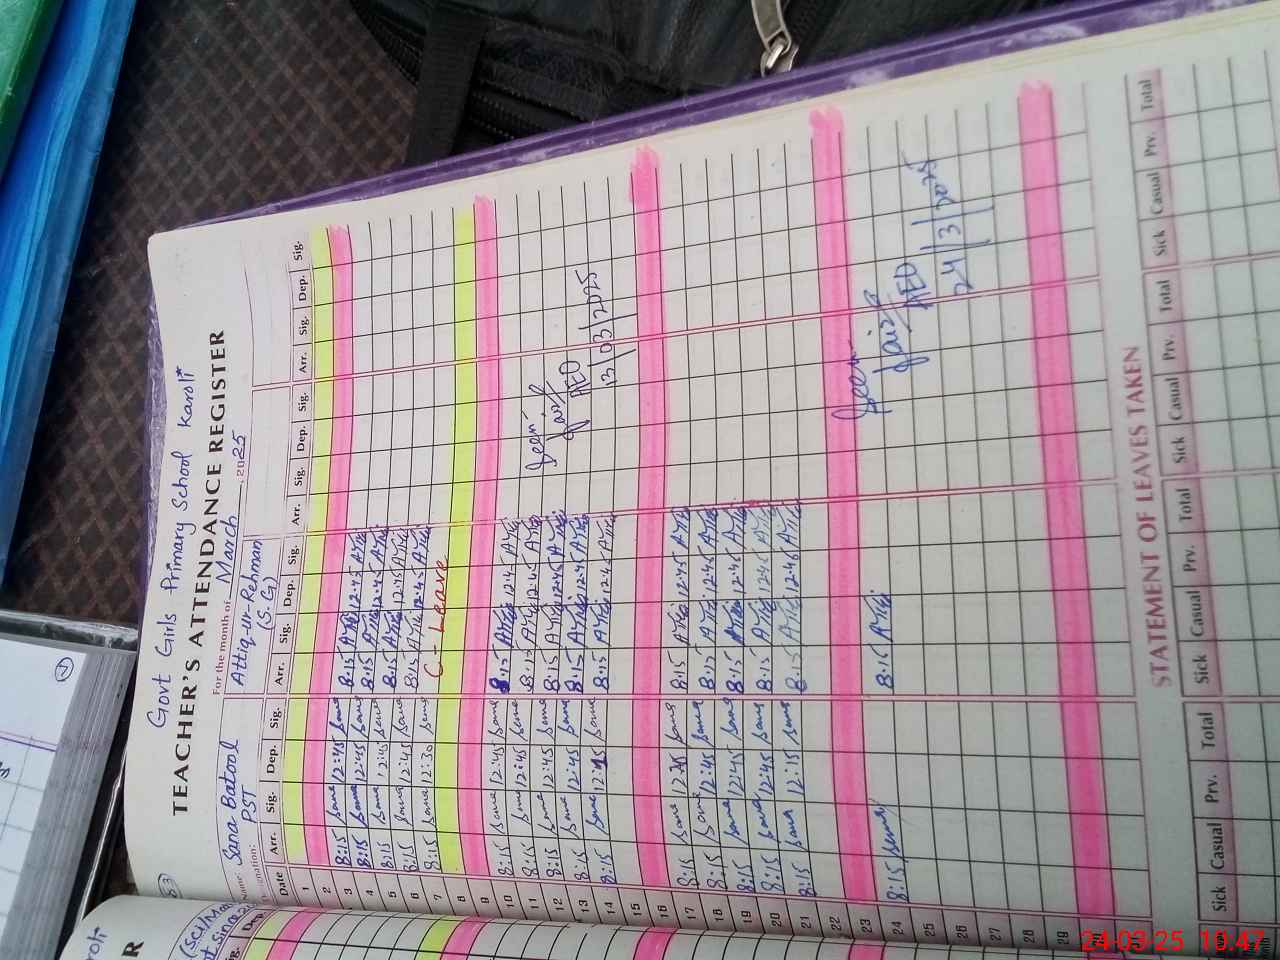 Govt Girls Primary School Karoli
TEACHER'S ATTENDANCE REGISTER
For the month of March 2025
Name: Sana Batool Attiq-ur-Rehman
PST (S.G)
Date Arr. Sig. Dep. Sig. Arr. Sig. Dep. Sig. Arr. Sig. Dep. Sig. Arr. Sig. Dep. Sig.
1
2
3 8:15 Sana 12:45 Sana 8:15 Attiq 12:45 Attiq
4 8:15 Sana 12:45 Sana 8:15 Attiq 12:45 Attiq
5 8:15 Sana 12:45 Sana 8:15 Attiq 12:15 Attiq
6 8:15 Sana 12:45 Sana 8:15 Attiq 12:45 Attiq
7 8:15 Sana 12:30 Sana C-Leave
8
9
10 8:15 Sana 12:45 Sana 8:15 Attiq 12:45 Attiq
11 8:15 Sana 12:45 Sana 8:15 Attiq 12:45 Attiq Seen
12 8:15 Sana 12:45 Sana 8:15 Attiq 12:45 Attiq
13 8:15 Sana 12:45 Sana 8:15 Attiq 12:45 Attiq AEO
14 8:15 Sana 12:15 Sana 8:15 Attiq 12:45 Attiq 13/03/2025
15
16
17 8:15 Sana Sana 8:15 Attiq 12:45 Attiq
18 8:15 Sana 12:45 Sana 8:15 Attiq 12:45 Attiq
19 8:15 Sana 12:45 Sana 8:15 Attiq 12:45 Attiq
20 8:15 Sana 12:45 Sana 8:15 Attiq 12:45 Attiq
21 8:15 Sana 12:15 Sana 8:15 Attiq 12:45 Attiq
22
23 Seen
24 8:15 Sana 8:15 Attiq
25 AEO
26 24/3/2025
27
28
29
STATEMENT OF LEAVES TAKEN
Sick Casual Prv. Total Sick Casual Prv. Total Sick Casual Prv. Total Sick Casual Prv. Total
24-03-25 10:47